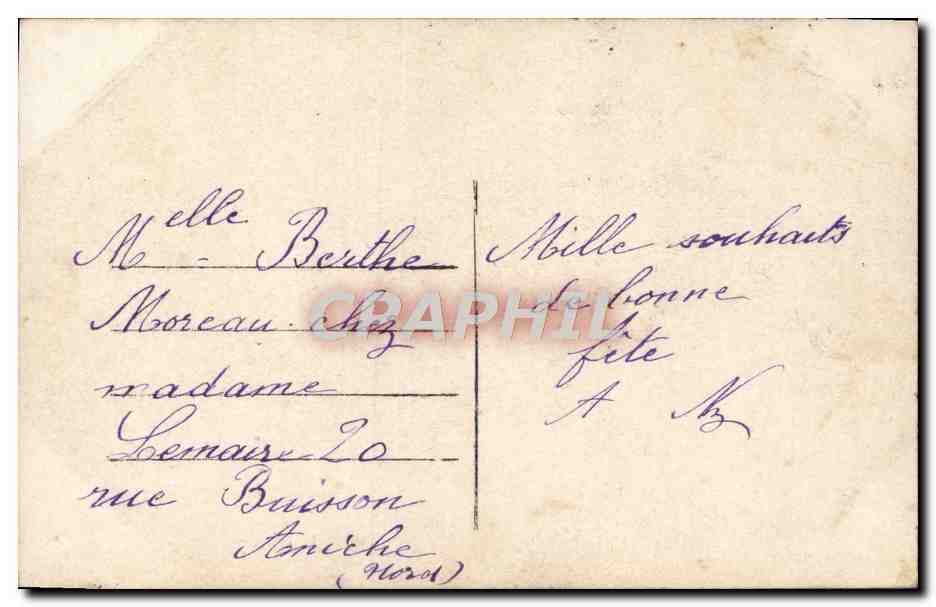 Melle Berthe
Moreau chez
madame
Lemaire 20
rue Buisson
Aniche
(Nord)
Mille souhaits
de bonne
fête
A
CRAPHIL